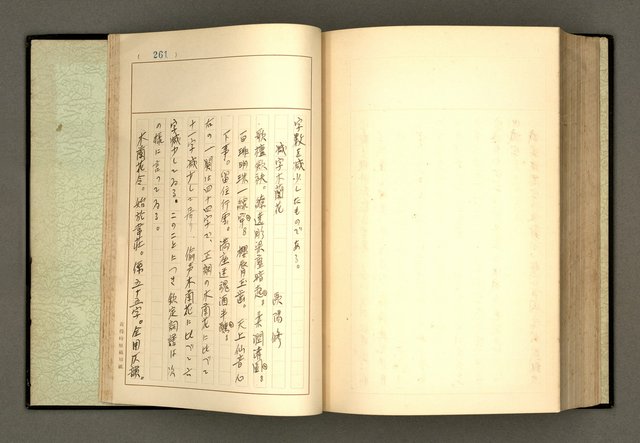 ( 261 )
字数を減少したものである。
減字木蘭花 欧陽修
歌檀斂袂。繚遶彫梁塵暗起。柔潤清圓。
百琲明珠一線穿。櫻脣玉齒。天上仙音心
下事。留住行雲。満座迷魂酒半醺。
右の一闋は四十四字で、の木蘭花に比べて
十一字減少して居り、偸声木蘭花に比べて六
字減少してゐる。このことにつき欽定詞譜は次
の様に言つてゐる。
木蘭花令。始於韋荘。係五十五字。全用仄韻。